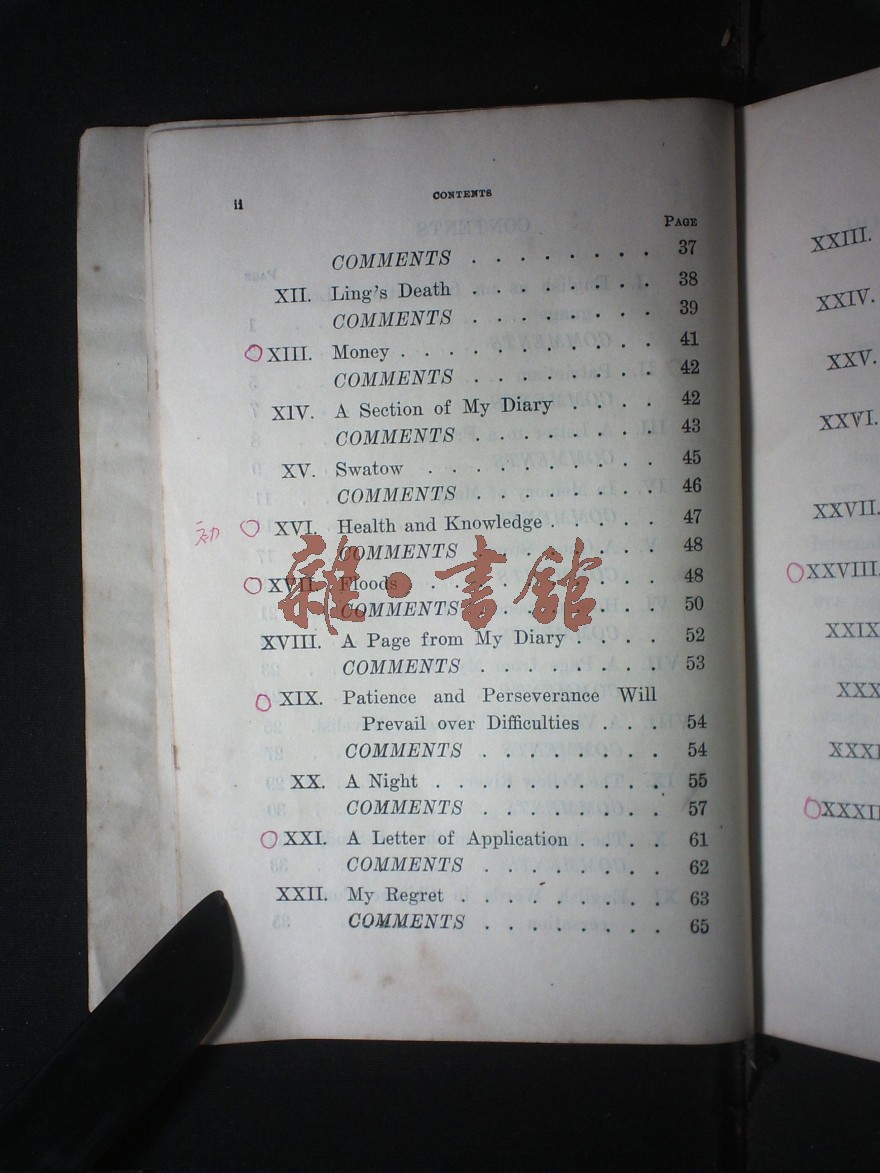 ii
CONTENTS
PAGE
COMMENTS . . . . . . . . 37
XII. Ling's Death . . . . . . . . 38
COMMENTS . . . . . . . . 39
XIII. Money . . . . . . . . . . . 41
COMMENTS . . . . . . . . 42
XIV. A Section of My Diary . . . . 42
COMMENTS . . . . . . . . 43
XV. Swatow . . . . . . . . . . 45
COMMENTS . . . . . . . . 46
XVI. Health and Knowledge . . . . . 47
COMMENTS . . . . . . . . 48
XVII. Floods . . . . . . . . . . 48
COMMENTS . . . . . . . . 50
XVIII. A Page from My Diary . . . . 52
COMMENTS . . . . . . . . 53
XIX. Patience and Perseverance Will
Prevail over Difficulties . . . 54
COMMENTS . . . . . . . . 54
XX. A Night . . . . . . . . . . 55
COMMENTS . . . . . . . . 57
XXI. A Letter of Application . . . . 61
COMMENTS . . . . . . . . 62
XXII. My Regret . . . . . . . . . 63
COMMENTS . . . . . . . . 65
雜·書館
XXIII.
XXIV.
XXV.
XXVI.
XXVII.
XXVIII.